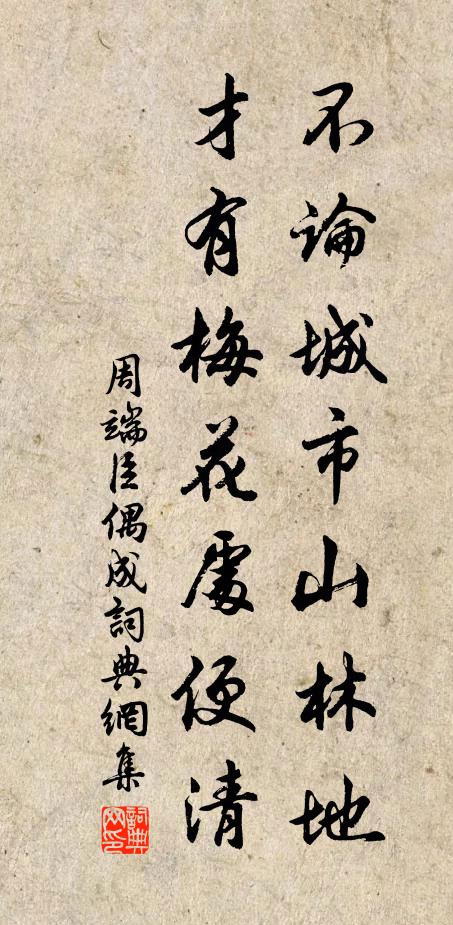 不論城市山林地
才有梅花處便清
周端臣偶成詞典網集
詞典网印